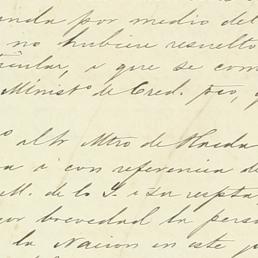 anda por medio del
no hubiere resuelto
ticular, i que se com
Minist.º de Cred. pco,
al Sr Mtro de Haeda
a i con referencia de
M. de la
por brevedad la pers
la Nacion en este